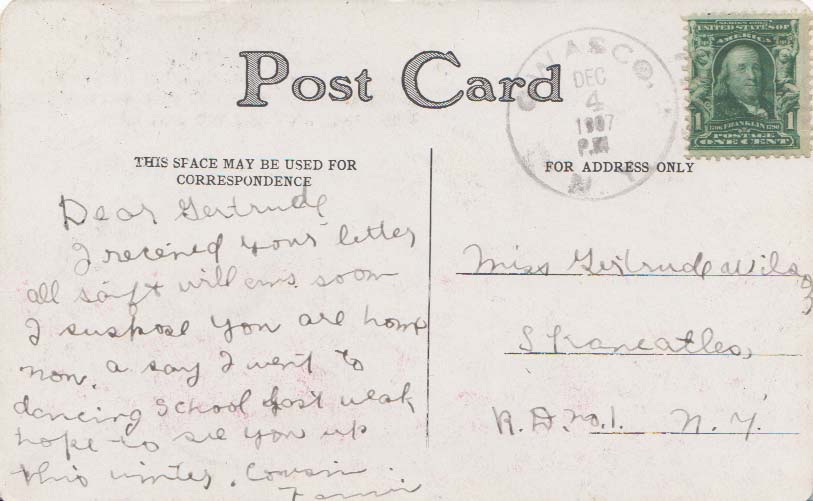 Post Card
OWASCO,
DEC
4
1907
P.M
N. Y.
SERIES 1902
UNITED STATES OF
AMERICA
1706 FRANKLIN 1790
1 1
POSTAGE
ONE CENT
THIS SPACE MAY BE USED FOR
CORRESPONDENCE
FOR ADDRESS ONLY
Dear Gertrude
I received your letter
all saift will ans. soon
I suspose you are home
now. a say I went to
dancing school last weak
hope to see you up
this winter. Cousin
Miss Gertrude Wils
Skaneatles,
R. D. no. 1. N. Y.